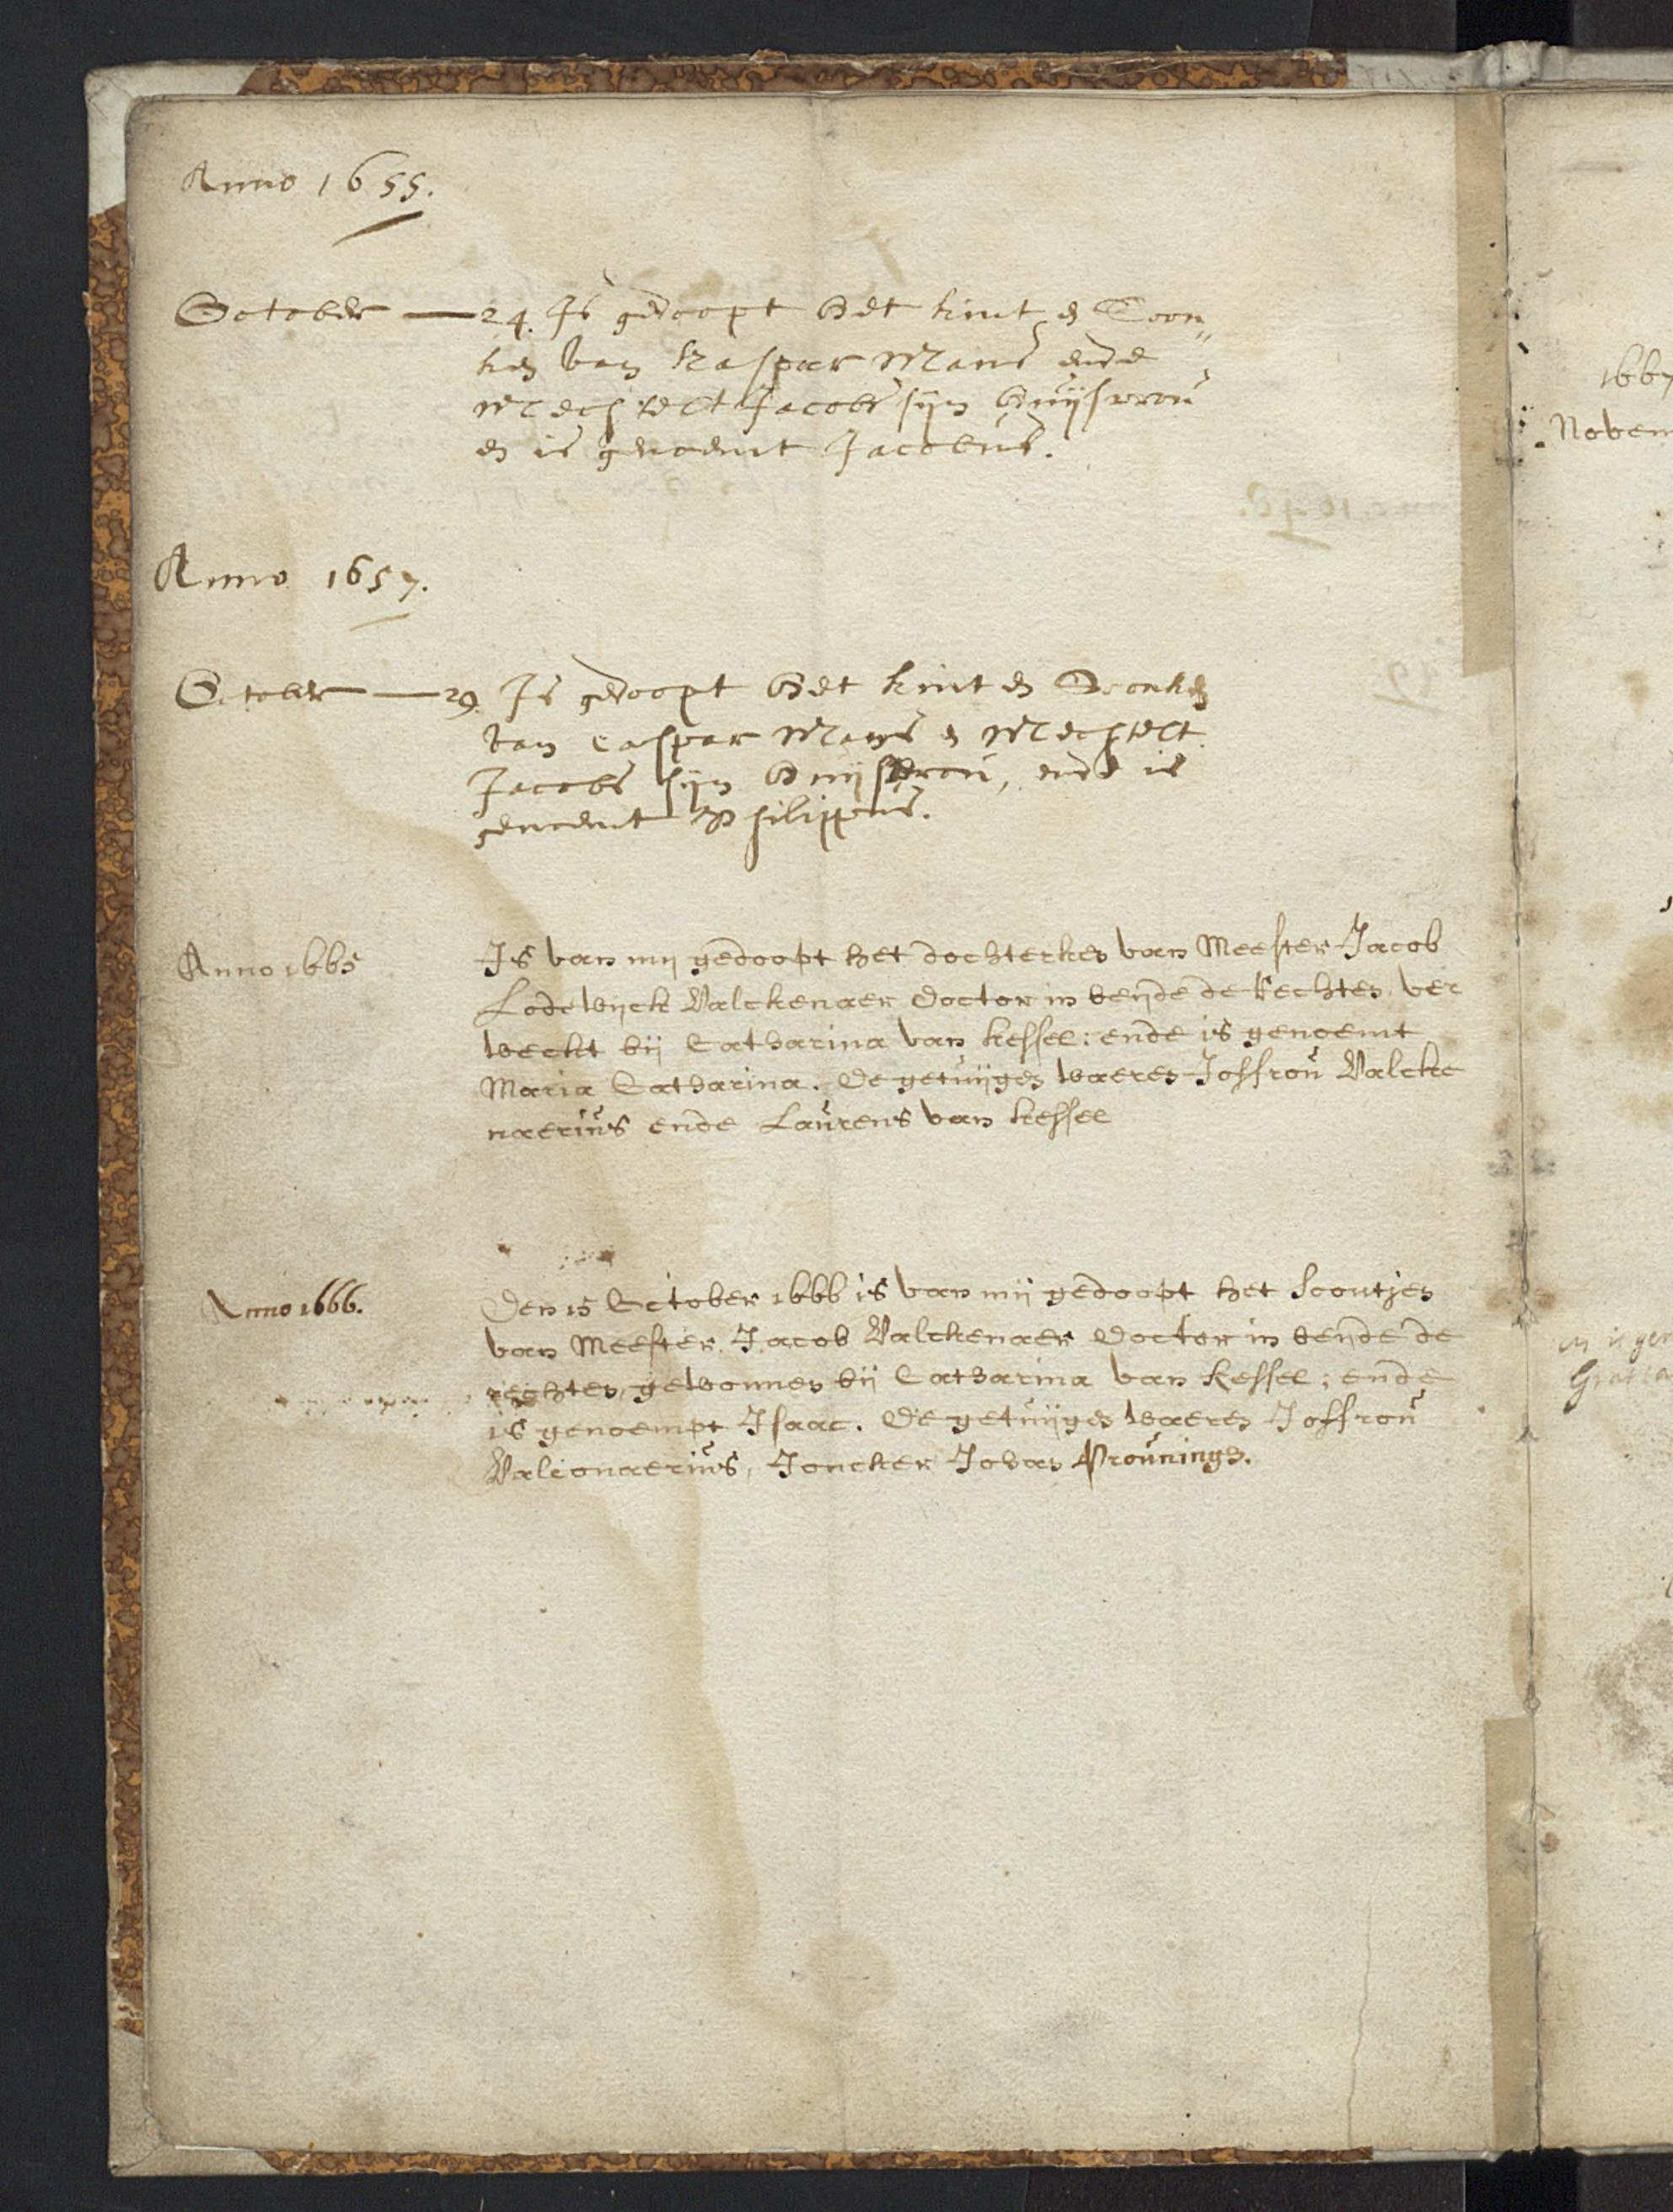 Anno 1655.
October — 24. Is gedoopt het kint en Soon„
ken van Kaspar Mans ende
Mechtelt Jacobs sijn huijsvrou
en is genoemt Jacobus.
Anno 1657.
October — 29. Is gedoopt het kint en Soonken
van Caspar Mans en Mechtelt
Jacobs sijn huijsvrou, ende is
genoemt Philippus.
Anno 1665 Is van mij gedoopt het dochterken van Meester Jacob
Lodewijck Valckenaer Doctor in beijde de Rechten, ver
weckt bij Catharina van Kessel: ende is genoemt
Maria Catharina. De getuijgen waeren Joffrou Valcke
naerius ende Laurens van Kessel
Anno 1666. Den 15 October 1666 is van mij gedoopt het Soontjen
van Meester Jacob Valckenaer Doctor in beijde de
rechten, gewonnen bij Catharina van Kessel; ende
is genoempt Isaac. De getuijgen waeren Joffrou
Valconaerius, Joncker Johan Prouningh.
1667
Novem
en is gen